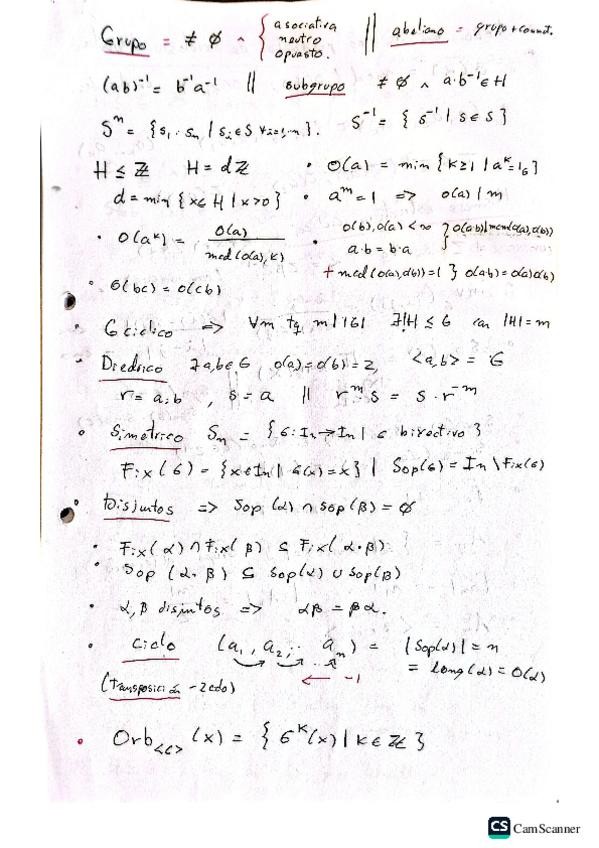 Grupo = ≠ ∅ ^ { asociativa neutro opuesto. || abeliano = grupo + conmut.
(ab)⁻¹ = b⁻¹a⁻¹ || subgrupo ≠ ∅ ^ a·b⁻¹ ∈ H
Sⁿ = {s₁·…sₙ | sᵢ ∈ S ∀i=1,…n}. S⁻¹ = {s⁻¹ | s ∈ S}
H ≤ ℤ H = dℤ • O(a) = min {k≥1 | aᵏ=1_G}
d = min {x ∈ H | x>0} • aᵐ = 1 => o(a) | m
• O(aᵏ) = O(a) / mcd(o(a),k) • o(b), o(a) < ∞ a·b = b·a } o(a·b) | mcm(o(a),o(b))
+ mcd(o(a),o(b))=1 } o(ab) = o(a)o(b)
• O(bc) = o(cb)
• G cíclico => ∀m tq m | |G| ∃!H ≤ G con |H| = m
• Diédrico ∃a,b∈G o(a)=o(b)=2, <a,b> = G
r = a·b , s = a || rᵐs = s·r⁻ᵐ
• Simétrico Sₙ = {σ: Iₙ→Iₙ | σ biyectivo}
Fix(σ) = {x∈Iₙ | σ(x)=x} | Sop(σ) = Iₙ \ Fix(σ)
• Disjuntos => Sop(α) ∩ Sop(β) = ∅
• Fix(α) ∩ Fix(β) ⊆ Fix(α·β)
• Sop(α·β) ⊆ Sop(α) ∪ Sop(β)
• α,β disjuntos => αβ = βα.
• Ciclo (a₁, a₂, … aₙ) = |Sop(α)| = n
= long(α) = O(α)
(transposición - 2 ciclo) ← -1
• Orb<σ>(x) = {σᵏ(x) | k∈ℤ}
CS CamScanner